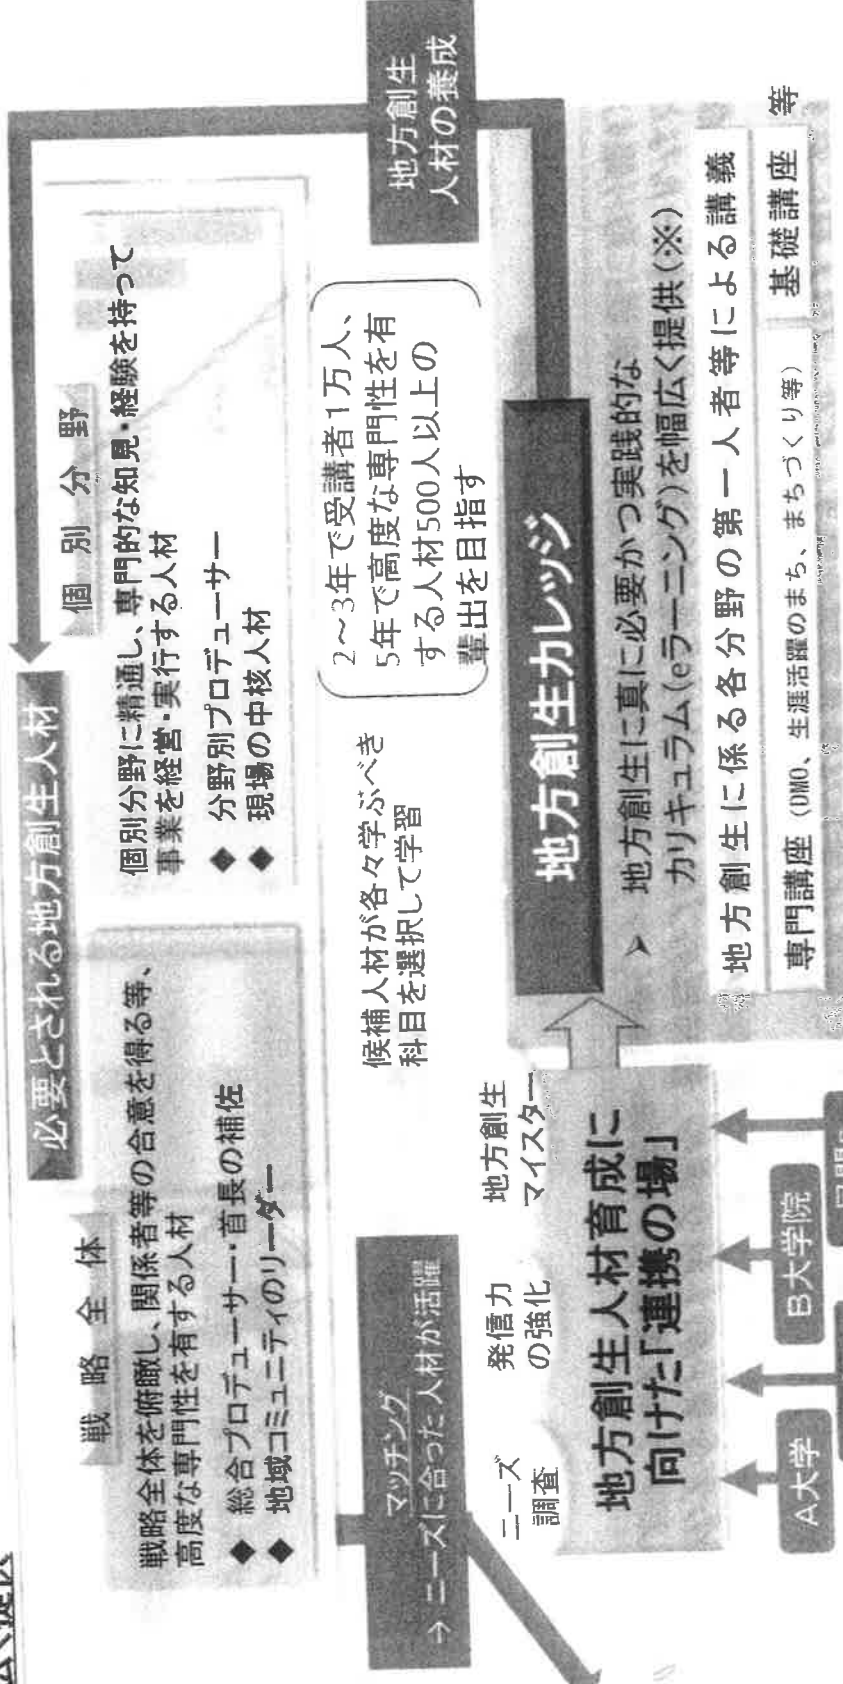 必要とされる地方創生人材
戦略全体
戦略全体を俯瞰し、関係者等の合意を得る等、
高度な専門性を有する人材
◆ 総合プロデューサー・首長の補佐
◆ 地域コミュニティのリーダー
個別分野
個別分野に精通し、専門的な知見・経験を持って
事業を経営・実行する人材
◆ 分野別プロデューサー
◆ 現場の中核人材
マッチング
→ ニーズに合った人材が活躍
候補人材が各々学ぶべき
科目を選択して学習
2～3年で受講者1万人、
5年で高度な専門性を有
する人材500人以上の
輩出を目指す
地方創生
人材の養成
ニーズ
調査
発信力
の強化
地方創生
マイスター
地方創生人材育成に
向けた「連携の場」
A大学
B大学院
地方創生カレッジ
➤ 地方創生に真に必要かつ実践的な
カリキュラム(eラーニング)を幅広く提供(※)
地方創生に係る各分野の第一人者等による講義
専門講座(DMO、生涯活躍のまち、まちづくり等)
基礎講座
等